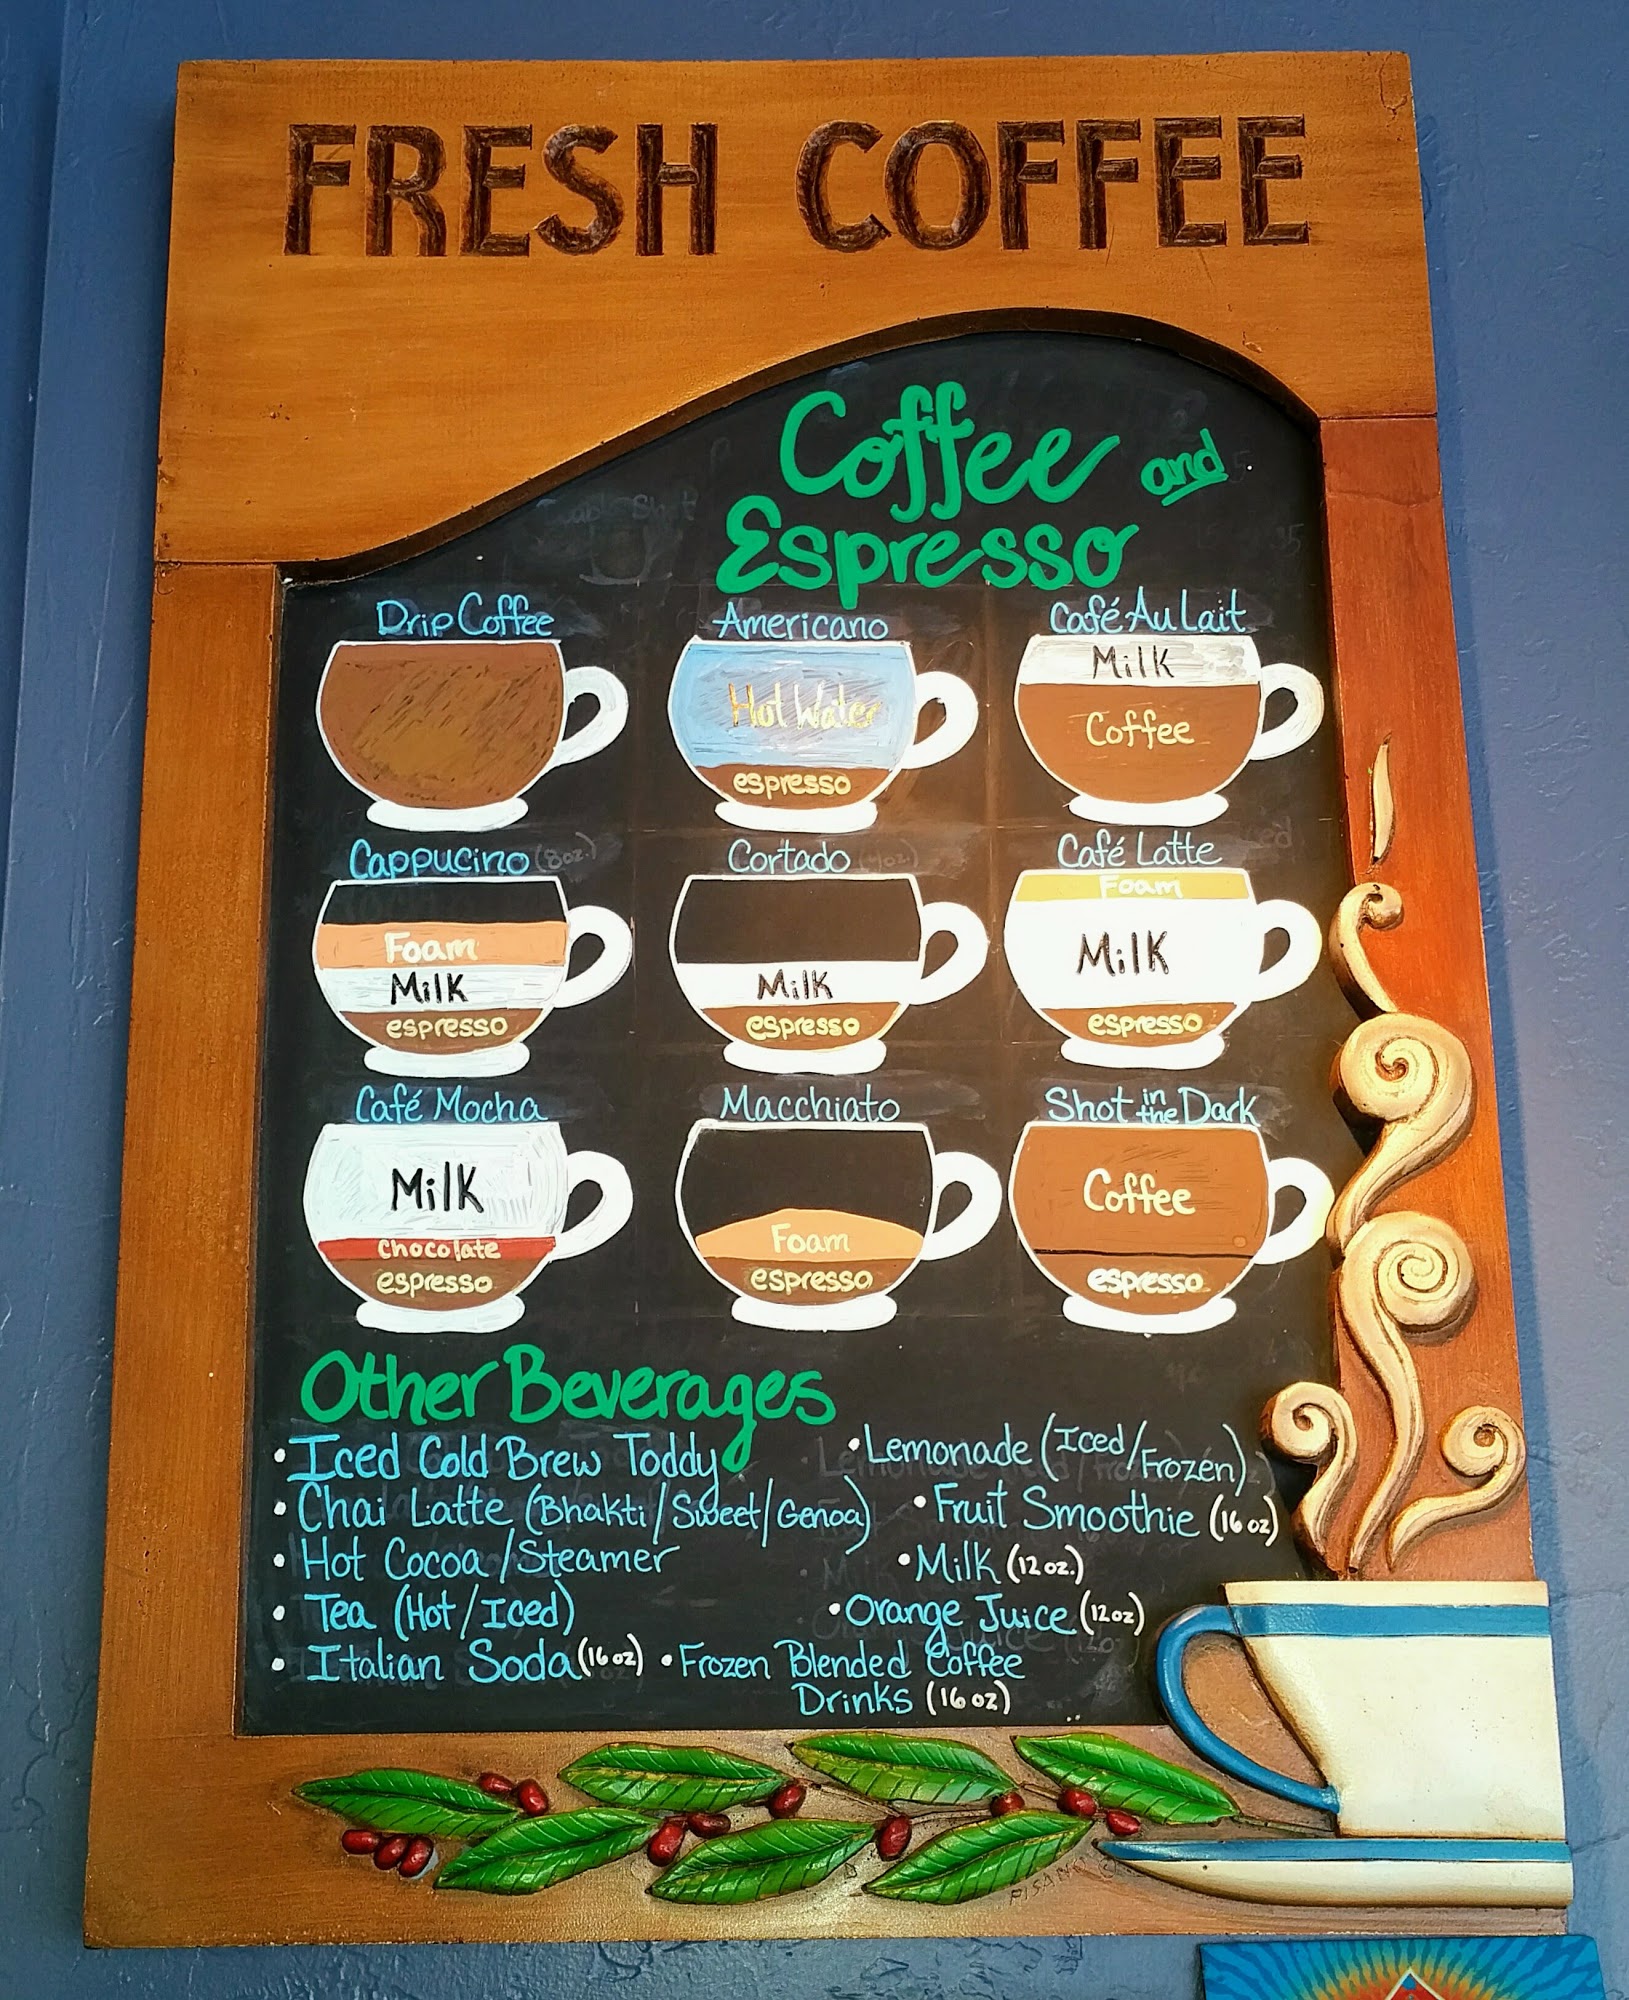 FRESH COFFEE
Coffee and
Espresso
Drip Coffee
Americano
Hot Water
espresso
Café Au Lait
Milk
Coffee
Cappucino (8oz.)
Foam
Milk
espresso
Cortado
Milk
espresso
Café Latte
Foam
Milk
espresso
Café Mocha
Milk
chocolate
espresso
Macchiato
Foam
espresso
Shot in the Dark
Coffee
espresso
Other Beverages
• Iced Cold Brew Toddy
• Chai Latte (Bhakti/Sweet/Genoa)
• Hot Cocoa/Steamer
• Tea (Hot/Iced)
• Italian Soda (16 oz)
• Lemonade (Iced/Frozen)
• Fruit Smoothie (16 oz)
• Milk (12 oz.)
• Orange Juice (12 oz)
• Frozen Blended Coffee
Drinks (16 oz)